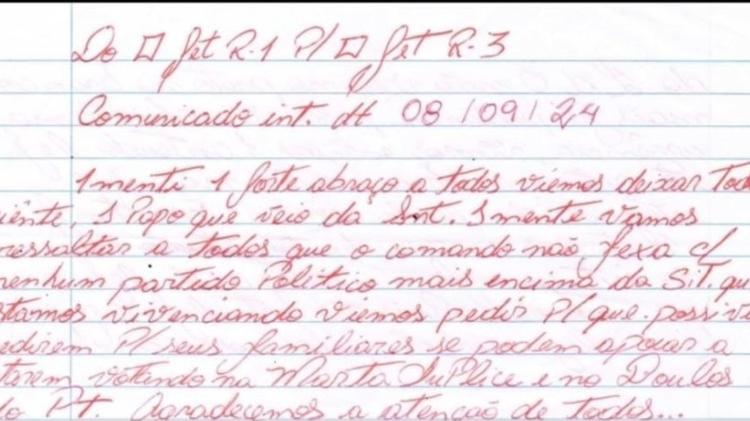 Do □ Jet R-1 P/ □ Jet R-3
Comunicado int. dt 08/09/24
1menti 1 forte abraço a todos viemos deixar Tod
iênte, 1 Papo que veio da Snt. 1mente vamos
ressaltar a todos que o comando não fexa c/
nenhum partido Político mais encima da SiT. qu
stamos vivenciando viemos pedir P/ que possiv
edirem P/ seus familiares se podem apoiar a
tarem votando na Marta Suplice e no Boulos
do PT. Agradecemos a atencão de Todos...